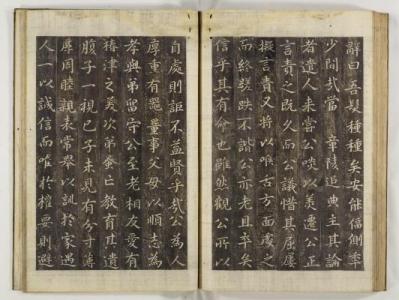 辭曰吾髮種種矣安能傴側率
少間哉當 章陵追典主其論
者遣人来嘗公啖以美遷公正
言責之既久而公議惜其屈屢
擬言責又將以唯舌方面處之
而終
不諧公亦老且卒矣
信乎其有命也雖然觀公所以
自處則詎不益賢乎哉公為人
厚重有器量事父母以順志為
孝與弟留守公至老相友愛有
椿津之美次弟喪亡教育其遺
腹子一視己子未見有分寸薄
厚周睦親表常舉以訓於家遇
人一以誠信而唯於權要則避